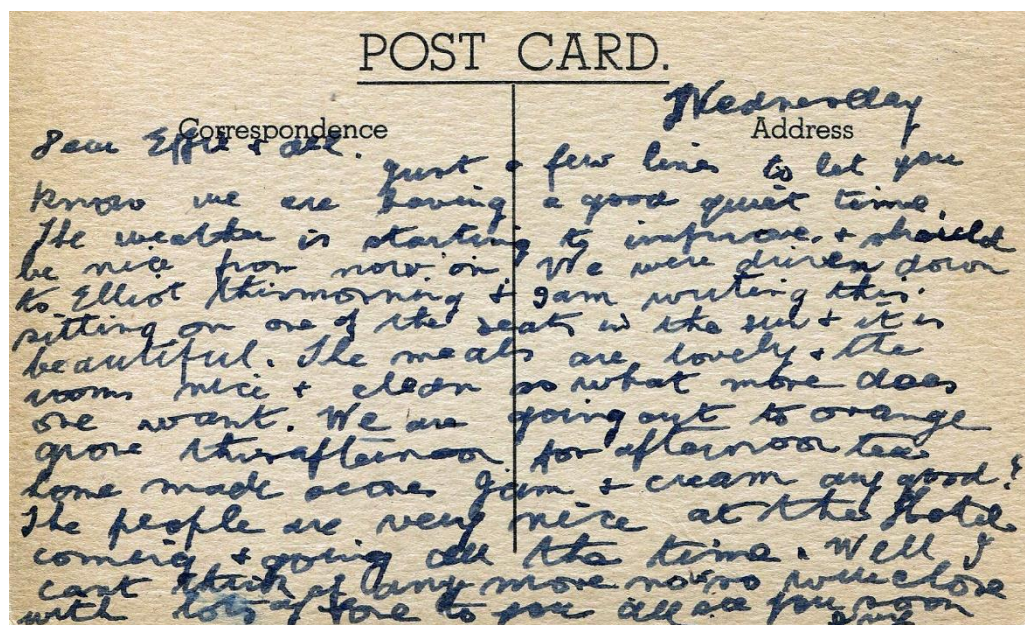 POST CARD.
Wednesday
Correspondence
Address
Dear Effie & all.
Just a few lines to let you
know we are having a good quiet time.
The weather is starting to improve. & should
be nice from now on. We were driven down
to Elliot this morning & I am writing this.
sitting on one of the seats in the sun & it is
beautiful. The meals are lovely & the
rooms nice & clean so what more does
one want. We are going out to orange
grove this afternoon for afternoon tea
home made scones Jam & cream any good?
The people are very nice at the Hotel
coming & going all the time. Well I
cant think of any more now so will close
with lots of love to you all see you soon